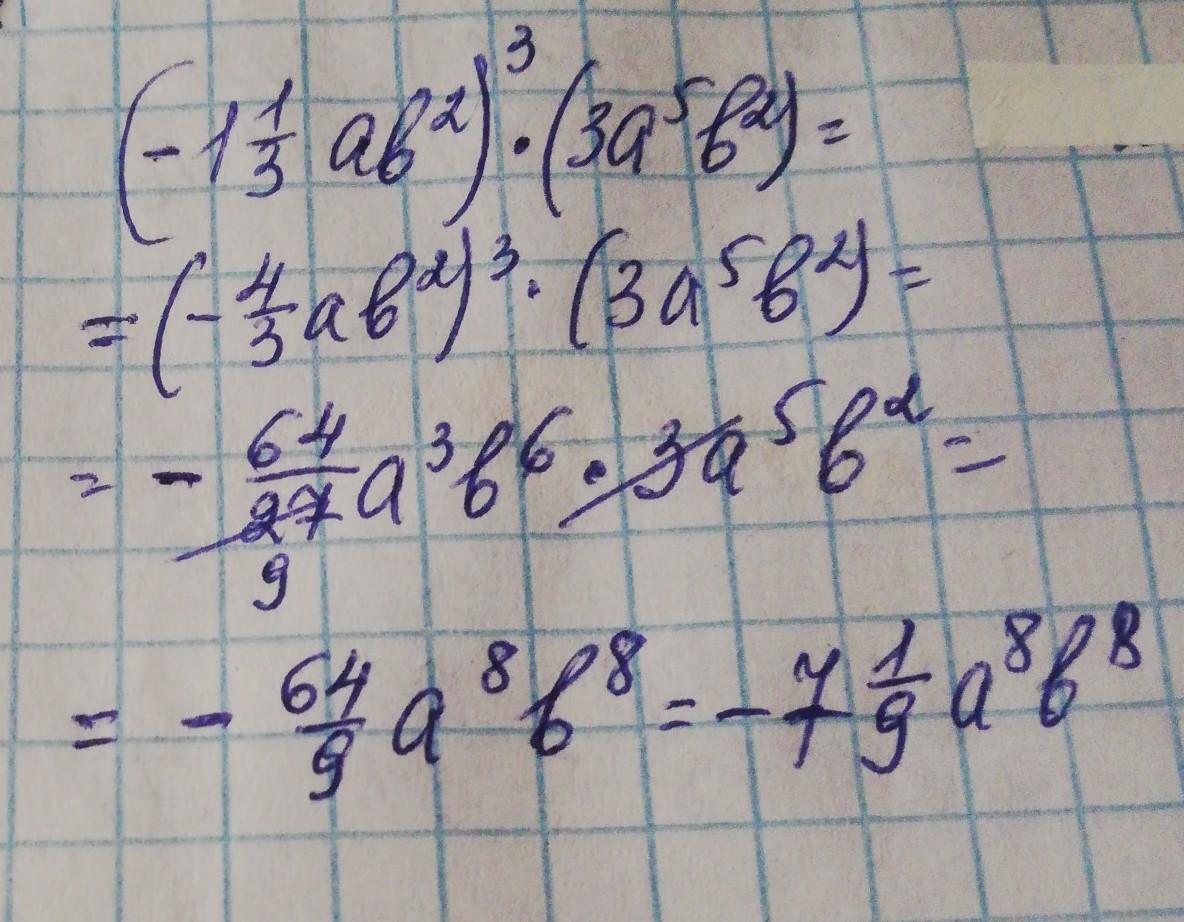 (-1 1/3 ab²)³ · (3a⁵b²) =
= (-4/3 ab²)³ · (3a⁵b²) =
= - 64/27 a³b⁶ · 3a⁵b² =
9
= - 64/9 a⁸b⁸ = -7 1/9 a⁸b⁸